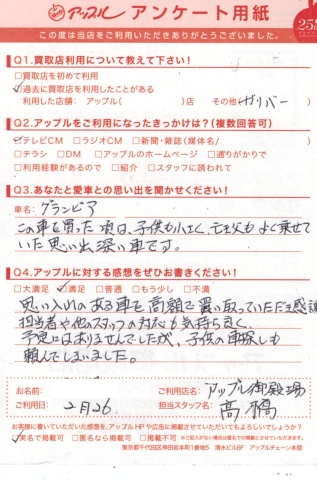 アップル アンケート用紙 25th
この度は当店をご利用いただきありがとうございました。
Q1.買取店利用について教えて下さい!
□買取店を初めて利用
☑過去に買取店を利用したことがある
利用した店舗: アップル( )店 その他(ガリバー)
Q2.アップルをご利用になったきっかけは?(複数回答可)
☑テレビCM □ラジオCM □新聞・雑誌(媒体名/ )
□チラシ □DM □アップルのホームページ □通りがかりで
□利用経験があるので □紹介 □スタッフに誘われて
Q3.あなたと愛車との思い出を聞かせください!
車名: グランビア
この車を買った頃は、子供も小さく、
よく乗せて
いた思い出深い車です。
Q4.アップルに対する感想をぜひお書きください!
□大満足 ☑満足 □普通 □もう少し □不満
思い入れのある車を高額で買い取っていただき感謝
担当者や他のスタッフの対応も気持ち良く、
予定にはありませんでしたが、子供の車探しも
頼んでしまいました。
お名前: ご利用店名: アップル御殿場
ご利用日: 2月26. 担当スタッフ名: 高橋
お客様に書いていただいた感想を、アップルHPや広告に掲載させていただいてもよろしいでしょうか?
☑実名で掲載可 □匿名なら掲載可 □掲載不可 ※ご記入がない場合は匿名での掲載とさせていただきます。
東京都千代田区神田岩本町1番地5 清水ビル6F アップルチェーン本部